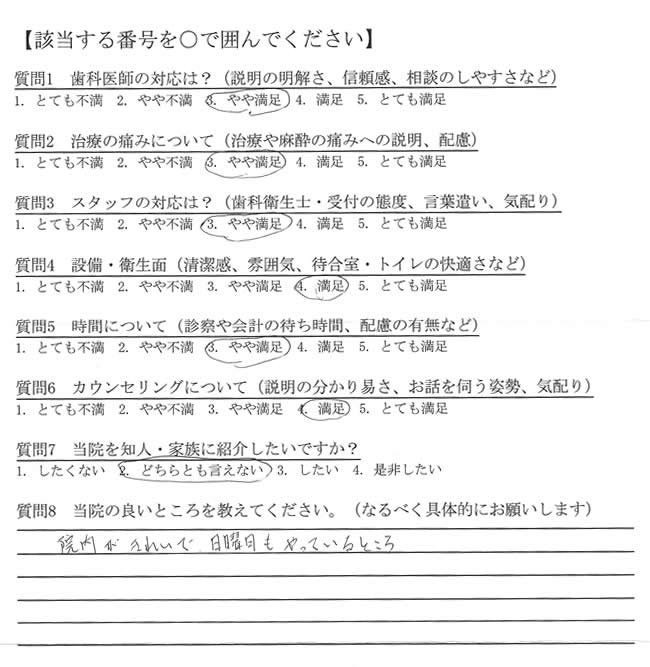 【該当する番号を〇で囲んでください】
質問1 歯科医師の対応は？（説明の明解さ、信頼感、相談のしやすさなど）
1. とても不満 2. やや不満 3. やや満足 4. 満足 5. とても満足
質問2 治療の痛みについて（治療や麻酔の痛みへの説明、配慮）
1. とても不満 2. やや不満 3. やや満足 4. 満足 5. とても満足
質問3 スタッフの対応は？（歯科衛生士・受付の態度、言葉遣い、気配り）
1. とても不満 2. やや不満 3. やや満足 4. 満足 5. とても満足
質問4 設備・衛生面（清潔感、雰囲気、待合室・トイレの快適さなど）
1. とても不満 2. やや不満 3. やや満足 4. 満足 5. とても満足
質問5 時間について（診察や会計の待ち時間、配慮の有無など）
1. とても不満 2. やや不満 3. やや満足 4. 満足 5. とても満足
質問6 カウンセリングについて（説明の分かり易さ、お話を伺う姿勢、気配り）
1. とても不満 2. やや不満 3. やや満足 4. 満足 5. とても満足
質問7 当院を知人・家族に紹介したいですか？
1. したくない 2. どちらとも言えない 3. したい 4. 是非したい
質問8 当院の良いところを教えてください。（なるべく具体的にお願いします）
院内がきれいで 日曜日もやっているところ